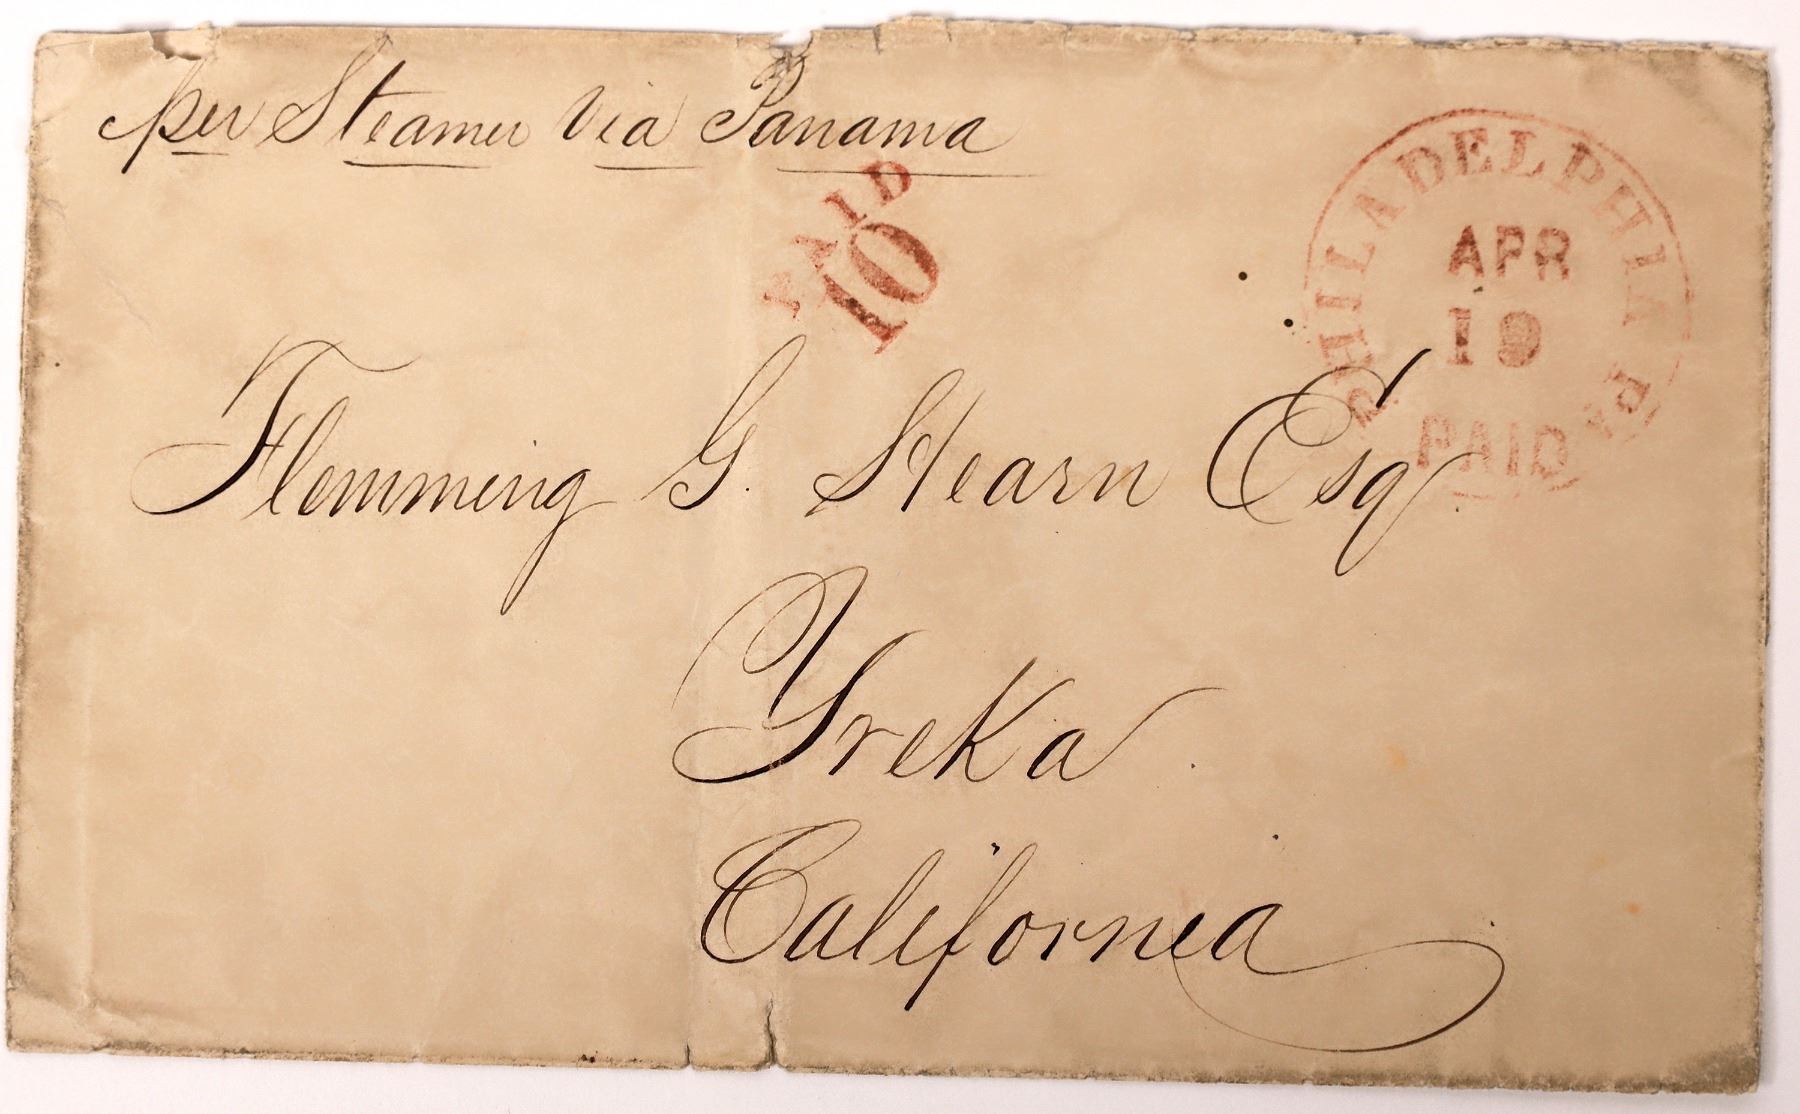 per Steamer via Panama
PAID
10
PHILADELPHIA Pa.
APR
19
PAID
Flemming G. Hearn Esq
Yreka
California